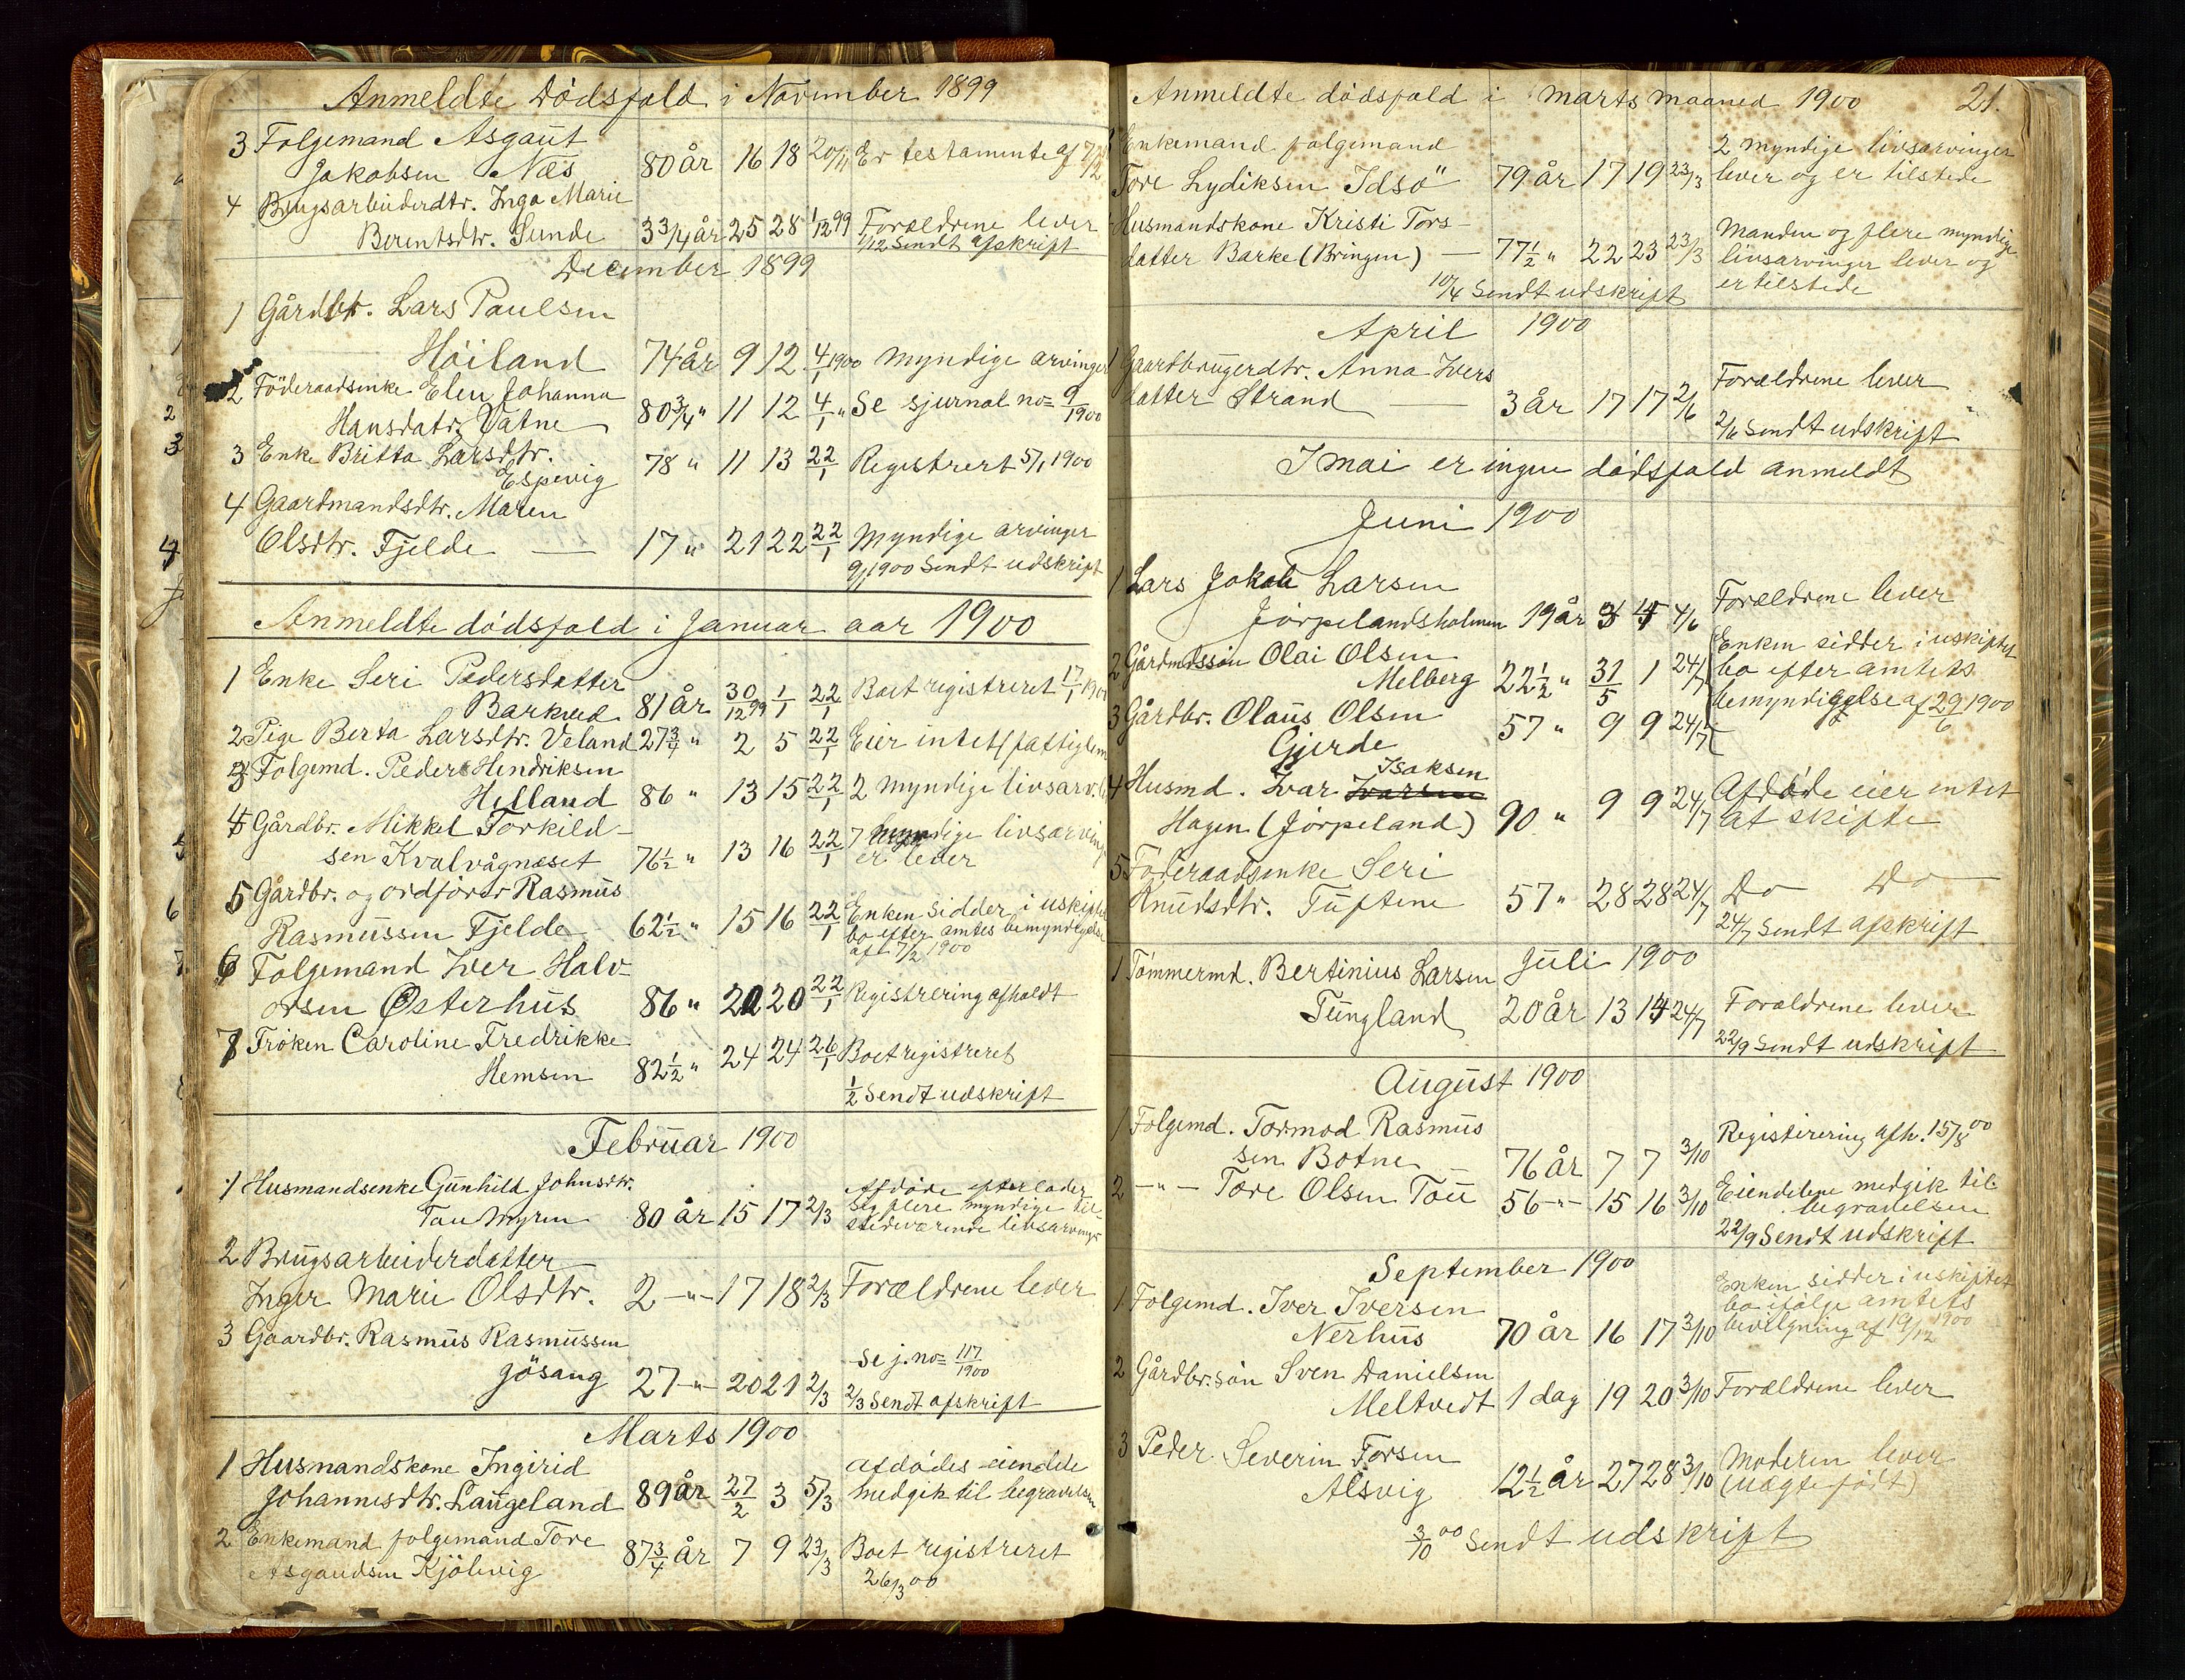 Anmeldte Dödsfald i November 1899
3 Folgemand Asgaut
Jakobsen Næs 80 år 16 18 20/11 Er testamente af 7/12
4 Brugsarbeiderdtr. Inga Marie
Berentsdtr. Sunde 3 3/4 år 25 28 1/12 99 Forældrene lever
1/12 Sendt afskrift
December 1899
1 Gårdbr. Lars Paulsen
Höiland 74 år 9 12 4/1 1900 Myndige arvinger
2 Föderaadsenke Elen Johanna
Hansdatr. Vatne 80 3/4 " 11 12 4/1 " Se sjurnal no= 9/1900
3 Enke Britta Larsdtr.
Espevig 78 " 11 13 22/1 Registrert 5/1 1900
4 Gaardmandsdtr. Maren
Olsdtr. Fjelde — 17 " 21 22 22/1 Myndige arvinger
9/1 1900 Sendt udskrift
Anmeldte dödsfald i Januar aar 1900
1 Enke Seri Pedersdatter
Barkved 81 år 30/12 99 1/1 22/1 Boet registreret 17/1 1900
2 Pige Berta Larsdtr. Veland 27 3/4 " 2 5 22/1 Eier intet (fattiglem
3 Folgemd. Peder Hendriksen
Helland 86 " 13 15 22/1 2 myndige livsarv.
4 Gårdbr. Mikkel Torkild-
sen Kvalvågnæset 76 1/2 " 13 16 22/1 7 myndige livsarving
er lever
5 Gårdbr. og ordförer Rasmus
Rasmussen Fjelde 62 1/2 " 15 16 22/1 Enken sidder i uskiftet
bo efter amtes bemyndigelse
af 7/2 1900
6 Folgemand Iver Halv-
orsen Østerhus 86 " 20 20 22/1 Registrering afholdt
7 Fröken Caroline Fredrikke
Hemsen 82 1/2 " 24 24 26/1 Boet registreret
1/2 Sendt udskrift
Februar 1900
1 Husmandsenke Gunhild Johnsdtr.
Tau Myren 80 år 15 17 2/3 Afdöde efterlader
sig flere myndige til-
stedeværende livsarvinger
2 Brugsarbeiderdatter
Inger Marie Olsdtr. 2 -"- 17 18 2/3 Forældrene lever
3 Gaardbr. Rasmus Rasmussen
Jösang 27 -"- 20 21 2/3 Se j. no= 117/1900
2/3 Sendt afskrift
Marts 1900
1 Husmandskone Ingirid
Johannesdtr. Laugeland 89 år 27/2 3 5/3 afdödes eiendele
medgik til begravelsen
2 Enkemand folgemand Tore
Asgaudsen Kjölevig 87 3/4 år 7 9 23/3 Boet registreret
26/3 00
Anmeldte dödsfald i marts maaned 1900 21.
Enkemand folgemand
Tore Lydiksen Idsö 79 år 17 19 23/3 2 myndige livsarvinger
lever og er tilstede
Husmandskone Kristi Tors-
datter Barke (Bringen) — 77 1/2 " 22 23 23/3 Manden og flere myndige
livsarvinger lever og
er tilstede
10/4 Sendt udskrift
April 1900
1 Gaardbrugerdtr. Anna Ivers
datter Strand — 3 år 17 17 2/6 Forældrene lever
2/6 Sendt udskrift
I mai er ingen dödsfald anmeldt
Juni 1900
1 Lars Jakob Larsen
Jörpelandsholmen 19 år 3 4 4/6 Forældrene lever
2 Gårdmdssön Olai Olsen
Melberg 22 1/2 " 31/5 1 24/7
3 Gårdbr. Olaus Olsen
Gjerde 57 " 9 9 24/7 Enken sidder i uskiftet
bo efter amtets
bemyndigelse af 29/6 1900
4 Husmd. Ivar Ivarsen Isaksen
Hagen (Jörpeland) 90 " 9 9 24/7 Afdöde eier intet
at skifte
5 Föderaadsenke Seri
Knudsdtr. Tuftene 57 " 28 28 24/7 Do Do
24/7 Sendt afskrift
Juli 1900
1 Tömmermd. Bertinius Larsen
Tungland 20 år 13 14 24/7 Forældrene lever
22/9 Sendt udskrift
August 1900
1 Folgemd. Tormod Rasmus
sen Botne — 76 år 7 7 3/10 Registirering afh. 15/8 00
2 -"- Tore Olsen Tau 56 -"- 15 16 3/10 Eiendelene medgik til
begravelsen
22/9 Sendt udskrift
September 1900
1 Folgemd. Iver Iversen
Nerhus 70 år 16 17 3/10 Enken sidder i uskiftet
bo ifölge amtets
bevilgning af 19/12 1900
2 Gårdbr.sön Sven Danielsen
Meltvedt 1 dag 19 20 3/10 Forældrene lever
3 Peder Severin Torsen
Alsvig 12 1/2 år 27 28 3/10 Moderen lever
(uægte födt)
3/10 00 Sendt udskrift